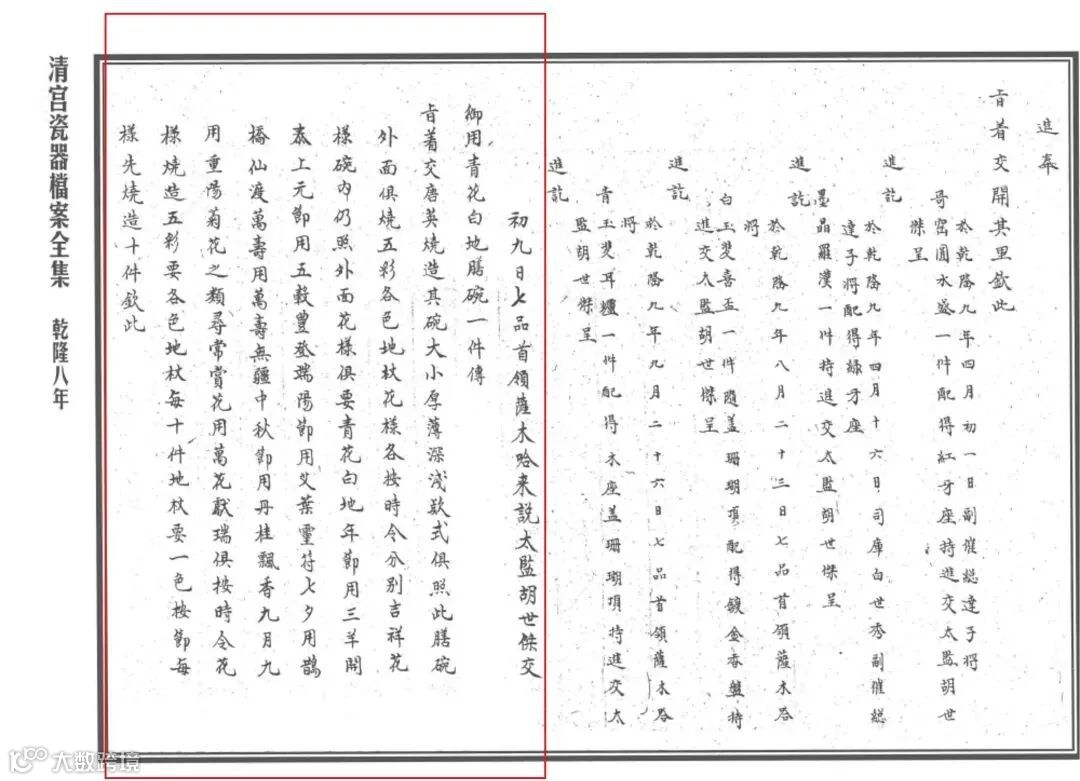 進奉
旨着交開其里欽此
於乾隆九年四月初一日副催総達子將
哥窑圓水盛一件配得紅牙座持進交太監胡世
傑呈
進訖
於乾隆九年四月十六日司庫白世秀副催総
達子將配得綠牙座
墨晶羅漢一件持進交太監胡世傑呈
進訖
於乾隆九年八月二十三日七品首領薩木哈
將
白玉雙喜盃一件隨盖珊瑚頂配得鍍金香盤持
進交太監胡世傑呈
進訖
於乾隆九年九月二十六日七品首領薩木哈
將
青玉雙耳罇一件配得木座盖珊瑚頂持進交太
監胡世傑呈
進訖
初九日七品首領薩木哈来說太監胡世傑交
御用青花白地膳碗一件傳
旨着交唐英燒造其碗大小厚薄深淺欵式俱照此膳碗
外面俱燒五彩各色地杖花樣各按時令分别吉祥花
樣碗内仍照外面花樣俱要青花白地年節用三羊開
泰上元節用五穀豊登端陽節用艾葉靈符七夕用鵲
橋仙渡萬壽用萬壽無疆中秋節用丹桂飄香九月九
用重陽菊花之類尋常賞花用萬花献瑞俱按時令花
樣燒造五彩要各色地杖每十件地杖要一色按節每
樣先燒造十件欽此
清宫瓷器檔案全集 乾隆八年
大数跨境